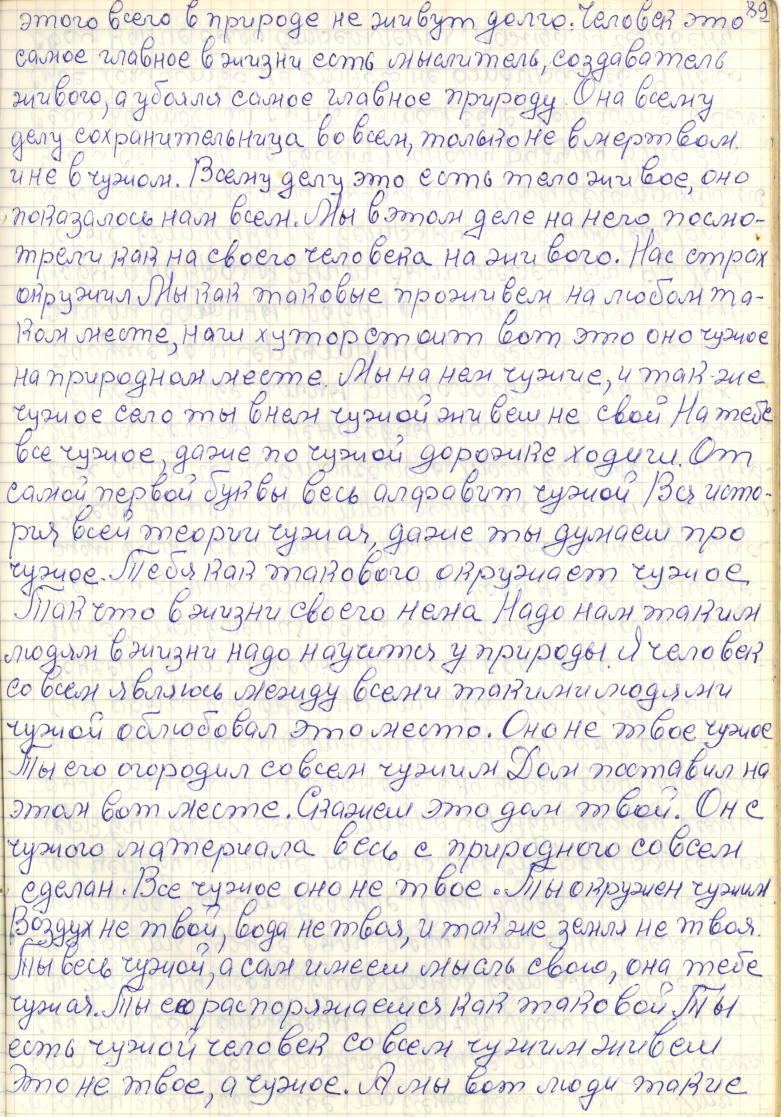 39
этого всего в природе не живут долго. Человек это
самое главное в жизни есть мыслитель, создаватель
живого, а убоялся самое главное природу. Она всему
делу сохранительница во всем, только не в мертвом
и не в чужом. Всему делу это есть тело живое, оно
показалось нам всем. Мы в этом деле на него посмо-
трели как на своего человека на живого. Нас страх
окружил Мы как таковые проживем на любом та-
ком месте, наш хутор стоит вот это оно чужое
на природном месте. Мы на нем чужие, и так-же
чужое село ты в нем чужой живеш не свой На тебе
все чужое, даже по чужой дорожке ходиш. От
самой первой буквы весь алфавит чужой Вся исто-
рия всей теории чужая, даже ты думаеш про
чужое. Тебя как такового окружает чужое
Так что в жизни своего нема Надо нам таким
людям в жизни надо научится у природы. Я человек
совсем являюсь между всеми такими людями
чужой облюбовал это место. Оно не твое чужое
Ты его огородил совсем чужим Дом поставил на
этом вот месте. Скажем это дом твой. Он с
чужого материала весь с природного совсем
сделан. Все чужое оно не твое. Ты окружен чужим
Воздух не твой, вода не твоя, и так же земля не твоя.
Ты весь чужой, а сам имеем мысль свою, она тебе
чужая. Ты ею распоряжаешся как таковой Ты
есть чужой человек совсем чужим живеш
Это не твое, а чужое. А мы вот люди такие